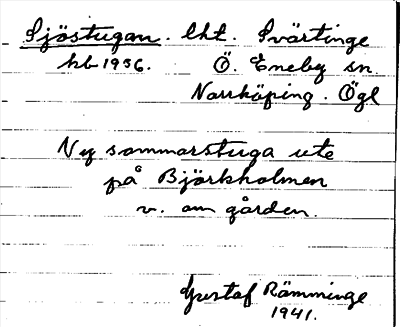 Sjöstugan. lht. Svärtinge
hb 1936. Ö. Eneby sn.
Norrköping. Ögl
Ny sommarstuga ute
på Björkholmen
v. om gården.
Gustaf Rämminge
1941.